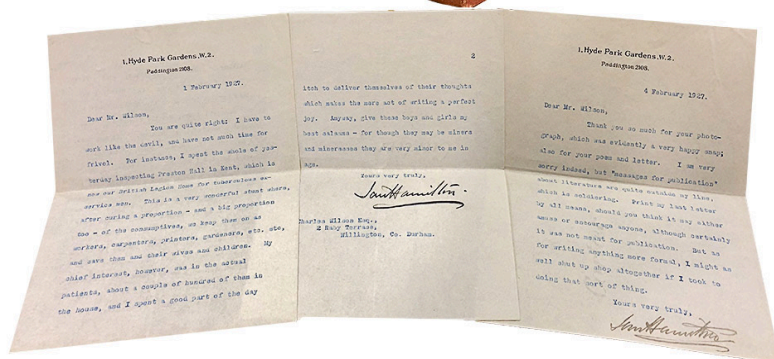 1, Hyde Park Gardens, W.2.
Paddington 2108.
1 February 1927.
Dear Mr. Wilson,
You are quite right: I have to
work like the devil, and have not much time for
frivol. For instance, I spent the whole of yes-
terday inspecting Preston Hall in Kent, which is
now our British Legion Home for tuberculous ex-
service men. This is a very wonderful show where,
after curing a proportion - and a big proportion
too - of the consumptives, we keep them on as
workers, carpenters, printers, gardeners, etc. etc,
and save them and their wives and children. My
chief interest, however, was in the actual
patients, about a couple of hundred of them in
the house, and I spent a good part of the day
2
itch to deliver themselves of their thoughts
which makes the mere act of writing a perfect
joy. Anyway, give these boys and girls my
best salaams - for though they may be miners
and mineresses they are very minor to me in
age.
Yours very truly,
Ian Hamilton.
Charles Wilson Esq.,
2 Ruby Terrace,
Willington, Co. Durham.
1, Hyde Park Gardens, W.2.
Paddington 2108.
4 February 1927.
Dear Mr. Wilson,
Thank you so much for your photo-
graph, which was evidently a very happy snap;
also for your poem and letter. I am very
sorry indeed, but "messages for publication"
about literature are quite outside my line,
which is soldiering. Print my last letter
by all means, should you think it may either
amuse or encourage anyone, although certainly
it was not meant for publication. But as
for writing anything more formal, I might as
well shut up shop altogether if I took to
doing that sort of thing.
Yours very truly,
Ian Hamilton